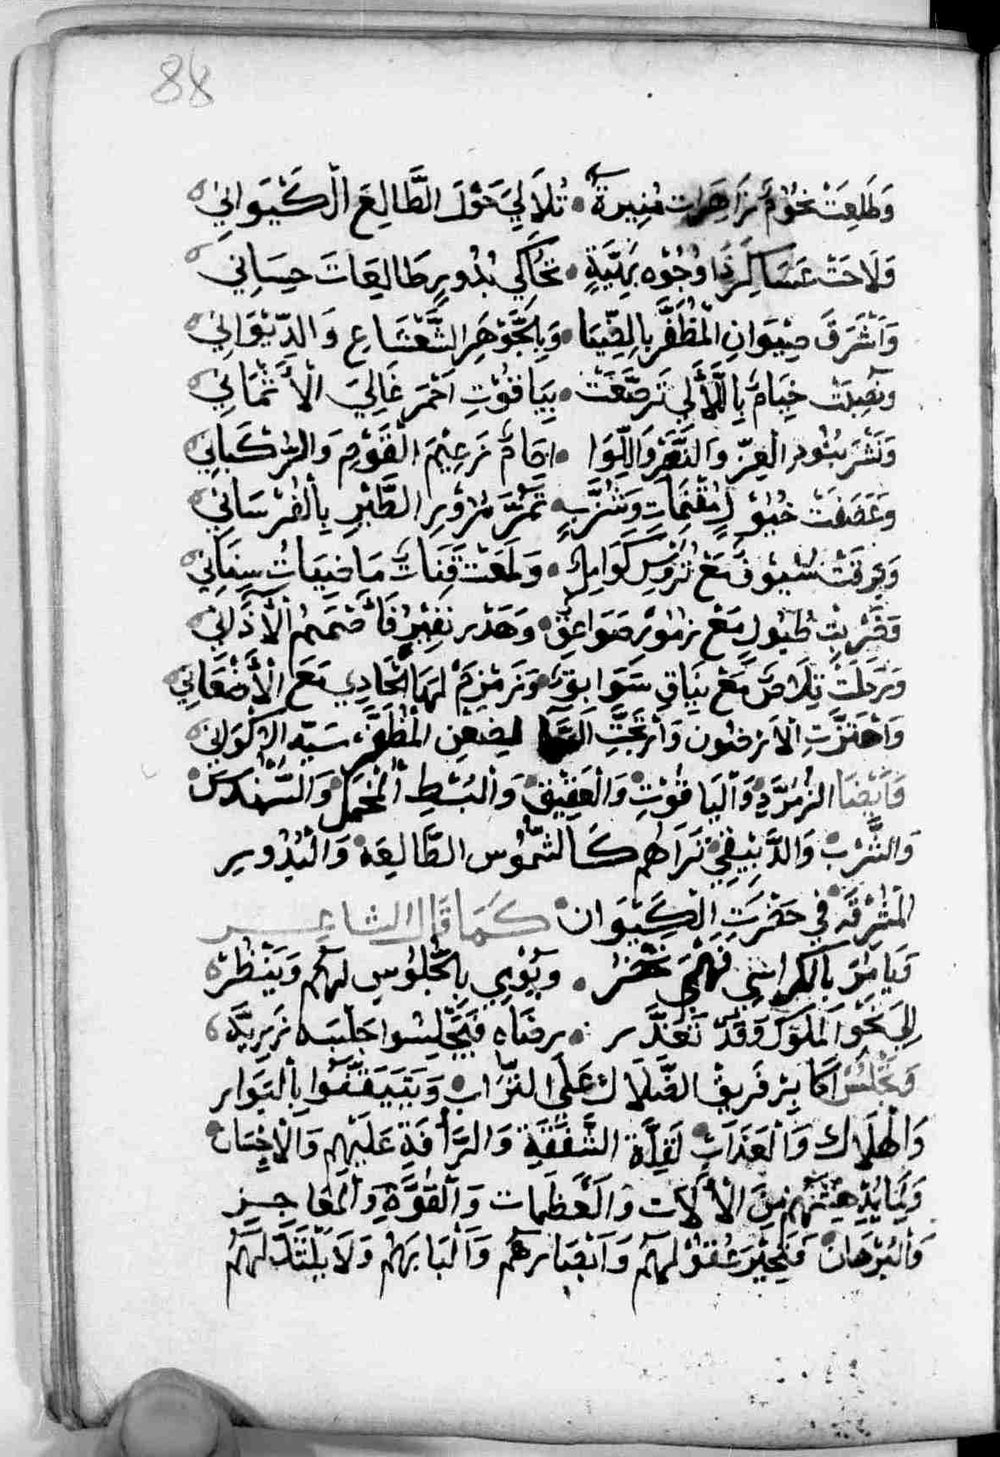 88
وَطَلَعَتْ نُجُوْمٌ زَاهِرَات مُنِيرَةٌ • تُلَالِيَ حَوْلَ الطَّالِعَ الْكَيْوَانِيْ
وَلَاحَتْ عَسَاكِرَ ذَا وُجُوْه بَهِيَّةٍ • تُحَاكِي بُدُورٍ طَالِعَاتَ حِسَانِيْ
وَاَشْرَقَ صِيْوَانِ الْمُظَفَّرْ بِالضِّيَا • وَبِالْجَّوْهَرِ الشَّعْشَاعِ وَالدِّيْوَانِيْ
وَنُصِبَتْ خِيَامٌ بِاللَّأَلِي تَرَصَّعَتْ • بِيَاقُوْتِ اَحْمَرَ غَالِيَ الْأَثْمَانِيْ
وَنَشْرَ بُنُودِ الْعِزّ وَالنَّصْرِ وَاللِّوَا • اَمَامَ زَعِيْمَ الْقَوْمِ وَالرُّكْبَانِيْ
وَعَصَفَتْ خُيُوْلٍ مُقْتِمَاتِ وَشُزَّبٍ • تَمُرُّ مُرُوْرِ الطَّيْرِ بِالْفُرْسَانِيْ
وَبَرِقَتْ سُيُوْفٌ مَعْ تُرُوْسٍ كَوَامِلٍ • وَلَمَعَتْ قِنَاتٌ مَاضِيَاتُ سِنَانِيْ
وَضُرِبَتْ طُبُولٍ مَعْ زُمُوْرٍ صَوَاعِقٍ • وَهَدْر نَفِيْرٍ فَأَصْمَمْ الْآذَانِيْ
وَرَحَلَتْ قِلَاصٌ مَعْ نِيَاقٍ سَوَابِقٍ • وَزَمْزَمْ لَهَا الْحَادِي مَعَ الْأَضْعَانِيْ
وَاهْتَزَّتِ الْاَرْضُون وَارْتَجَّتِ السَّمَا لِضِعْنِ الْمُظَفَّرْ سَيّد الْاَكْوَانِيْ
وَاَيْضًا الزُمُرَّدِ وَالْيَاقُوْتِ وَالْعَقِيْقْ وَالْبُسْطِ الْمُخْمَلْ وَالسُّنْدُسْ
وَالشَّرْبْ وَالدَّبِيْقِيْ نَرَاهُم كَالشُّمُوس الطَّالِعَة وَالْبُدُورِ
الْمُشْرِقَة فِي حَضْرَتِ الْكَيْوَانْ كَمَا قَالَ الشاعِر
وَيَامُرْ بِالْكَرَاسِي فَهْيَ تَحْضَرْ • وَيُوْمِي بِالْجُلُوسِ لَهُم وَيَنْظُرْ
اِلَى نَحْوَ الْمُلُوْكْ وَقَدْ تَعَذَّر • رِضَاهُ فَيَجْلِسُوا جَلْسَه
وَتَجْلِسْ اَكَابِرْ فَرِيقْ الضَّلَال عَلَى التُّرَابْ وَيَتَيَقَّنُوا بِالْبَوَار
وَالْهَلَاك وَالْعَذَابْ لِقِلَّةِ الشَّفَقَةِ وَالرَّأفَةِ عَلَيْهِم وَالْاِحْسَانْ
مِنَ الْاَلَات وَالْعَظَمَات وَالْقُوَّةِ وَالْمَعَاجِزْ
وَالْبُرْهَانْ عُقُوْلهُم وَاَبْصَارهُم وَاَلْبَابهُمْ وَلَا يَلْتَذّ لَهُم